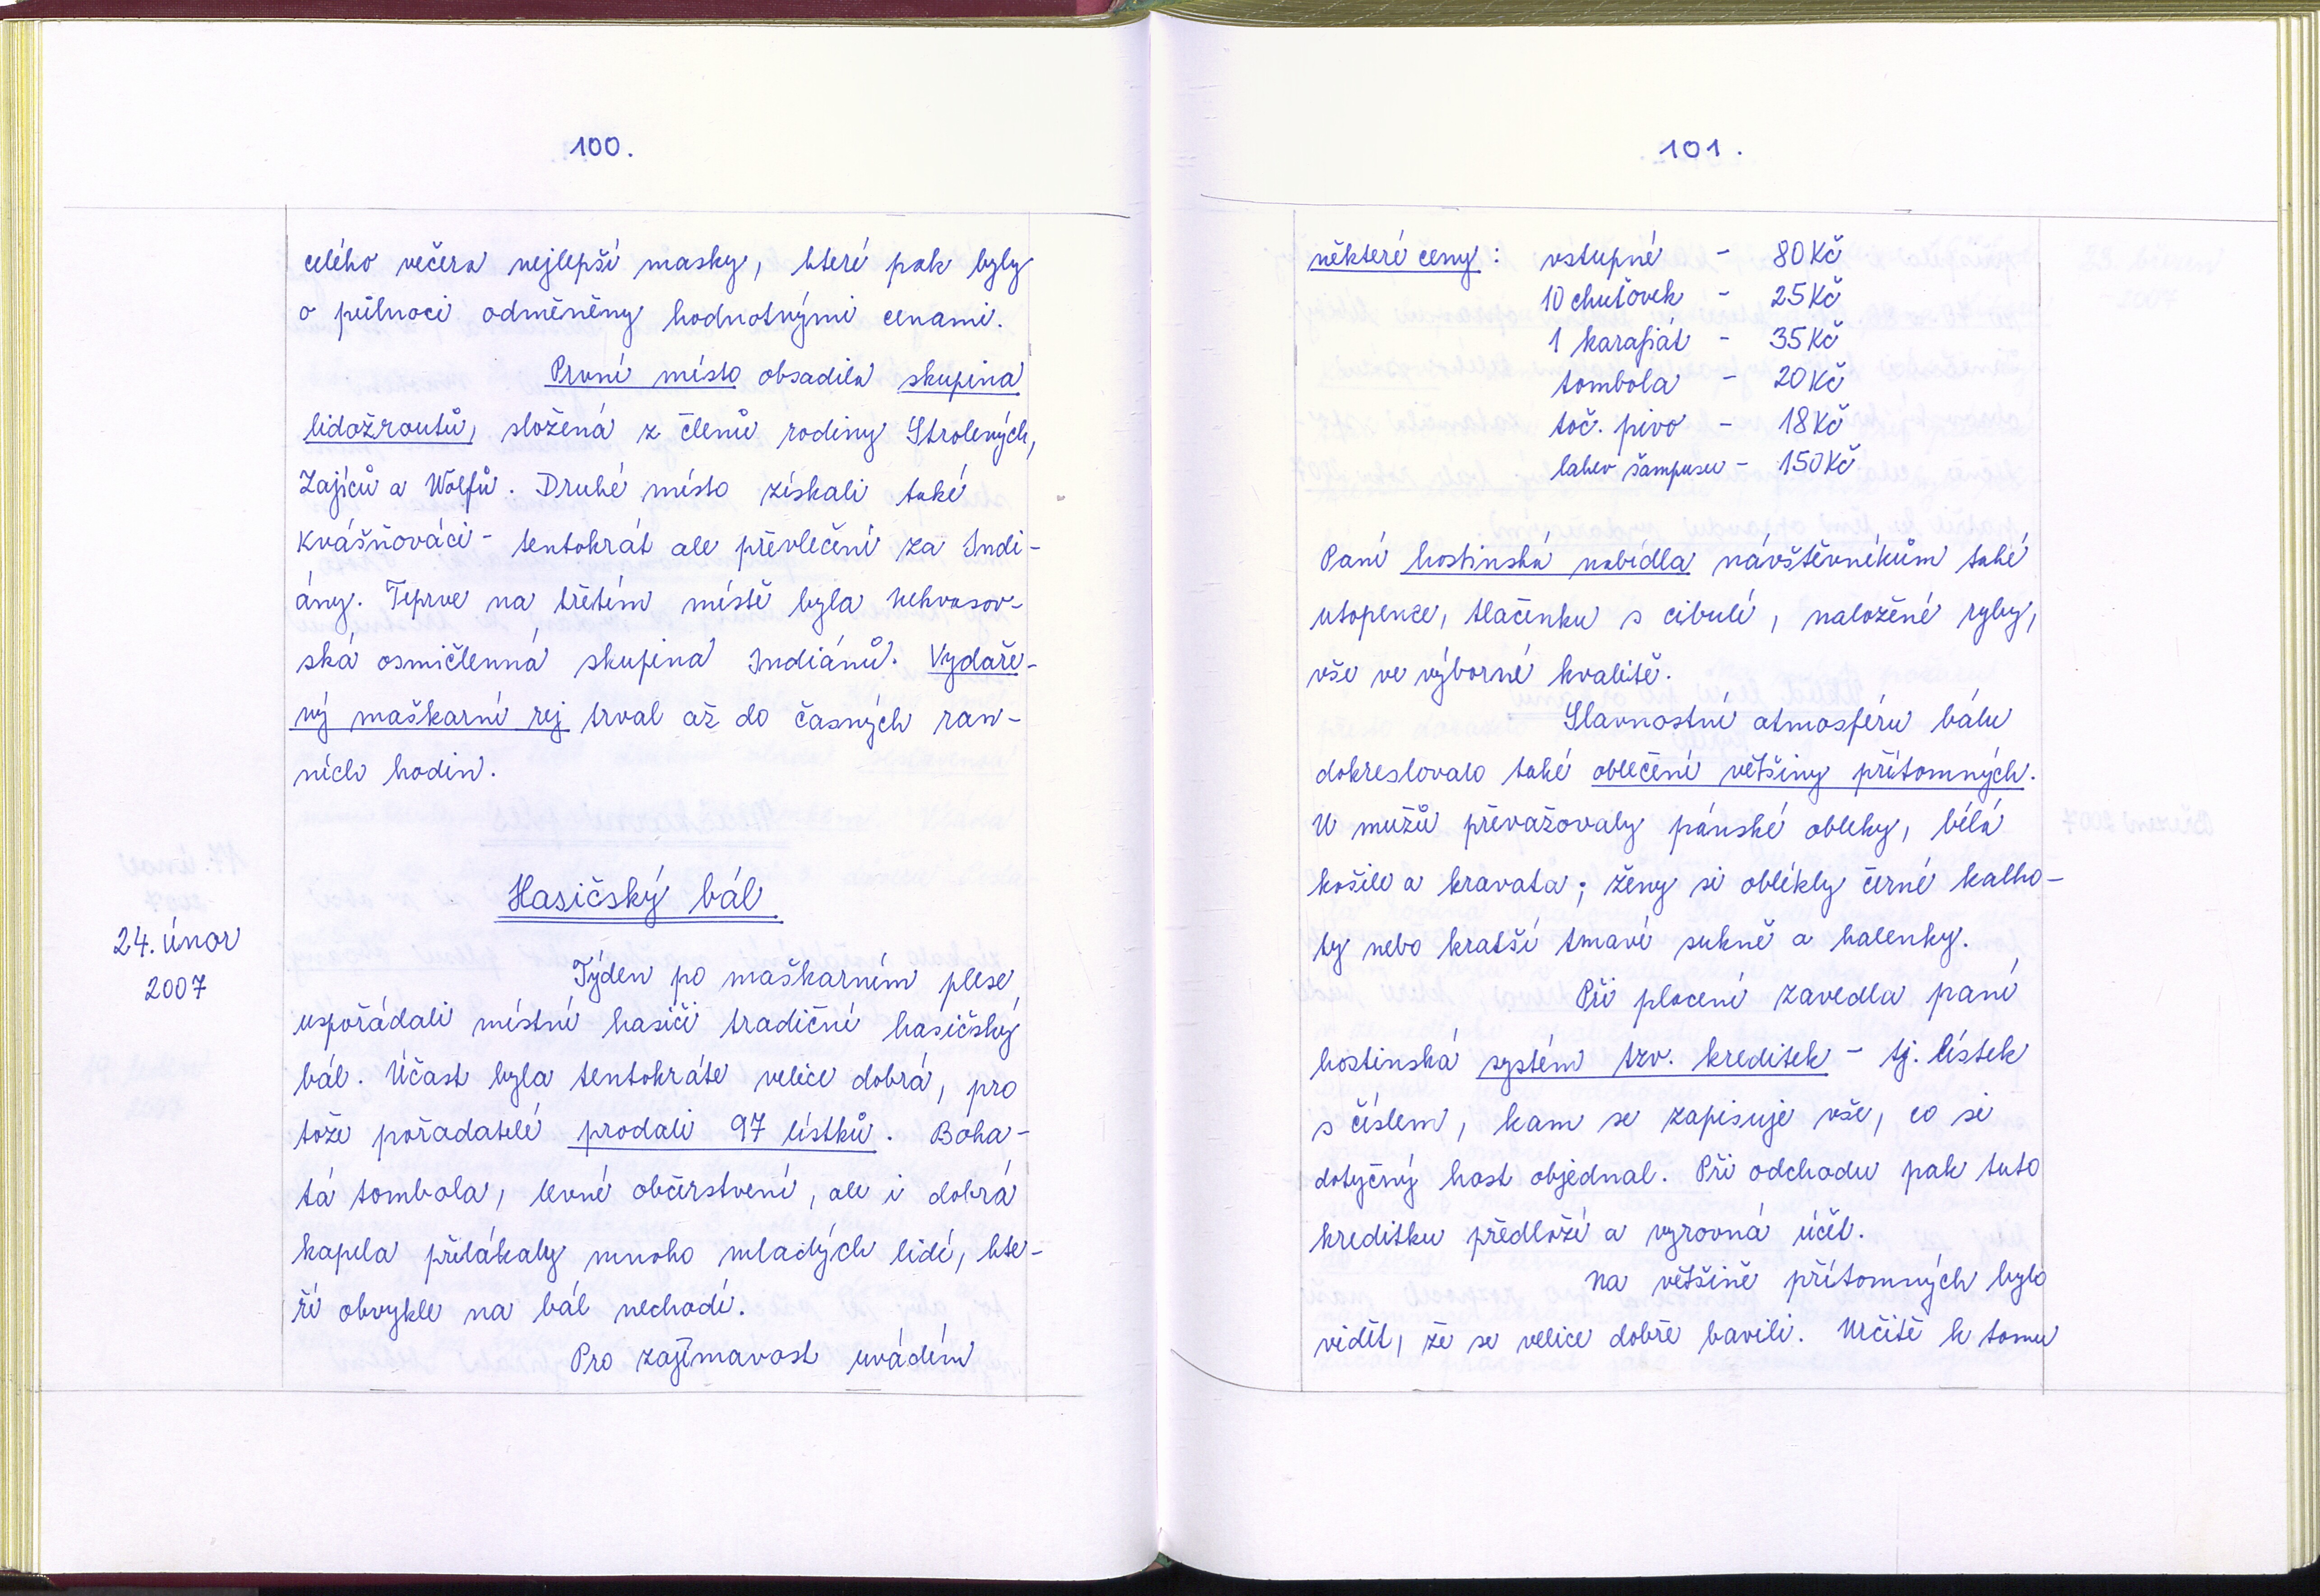 100.
celého večera nejlepší masky, které pak byly
o půlnoci odměněny hodnotnými cenami.
První místo obsadila skupina
lidožroutů, složená z členů rodiny Strolených,
Zajíců a Wolfů. Druhé místo získali také
Kvášňováci - tentokrát ale převlečení za Indi-
ány. Teprve na třetím místě byla nehvasov-
ská osmičlenná skupina Indiánů. Vydaře-
ný maškarní rej trval až do časných ran-
ních hodin.
Hasičský bál
24. únor
2007
Týden po maškarním plese
uspořádali místní hasiči tradiční hasičský
bál. Účast byla tentokráte velice dobrá, pro
tože pořadatelé prodali 97 lístků. Boha-
tá tombola, levné občerstvení, ale i dobrá
kapela přilákaly mnoho mladých lidí, kte-
ří obvykle na bál nechodí.
Pro zajímavost uvádím
101.
některé ceny: vstupné - 80 Kč
10 chuťovek - 25 Kč
1 karafiát - 35 Kč
tombola - 20 Kč
toč. pivo - 18 Kč
lahev šampusu - 150 Kč
Paní hostinská nabídla návštěvníkům také
utopence, tlačenku s cibulí, naložené ryby,
vše ve výborné kvalitě.
Slavnostní atmosféru bálu
dokreslovalo také oblečení většiny přítomných.
U mužů převažovaly pánské obleky, bílá
košile a kravata; ženy si oblékly černé kalho-
ty nebo kratší tmavé sukně a halenky.
Při placení zavedla paní
hostinská systém tzv. kreditek - tj. lístek
s číslem, kam se zapisuje vše, co si
dotyčný host objednal. Při odchodu pak tuto
kreditku předloží a vyrovná účet.
Na většině přítomných bylo
vidět, že se velice dobře bavili. Určitě k tomu